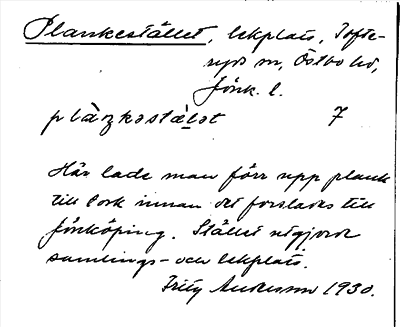 Plankestället, lekplats, Tofte-
ryds sn, Östbo hd,
Jönk. l.
plàŋkəstä̀lət 7
Här lade man förr upp plank
till tork innan det forslades till
Jönköping. Stället utgjorde
samlings- och lekplats.
Fritz Andersson 1930.